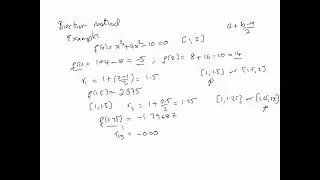 Bisection method
Example
f(x) = x³ + 4x² - 10 = 0 [1, 2]
f(1) = 1 + 4 - 10 = -5 ; f(2) = 8 + 16 - 10 = 14
r₁ = 1 + (2-1)/2 = 1.5 [1, 1.5] or [1.5, 2]
f(1.5) = 2.375
[1, 1.5] r₂ = 1 + 0.5/2 = 1.25 [1, 1.25] or
f(1.25) = -1.79687
= -0.00